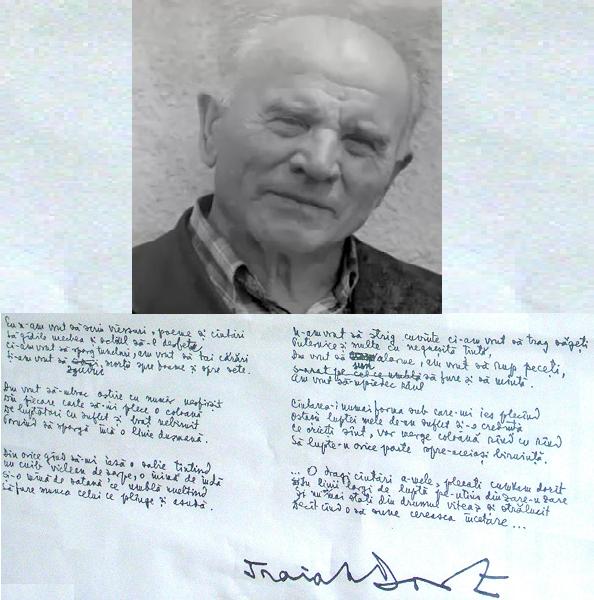 Eu n-am vrut să scriu viersuri, poeme și cîntări
Să gîdile urechea și ochiul să-l desfete,
Ci-am vrut să sparg tuneluri, am vrut să tai cărări
Și-am vrut să spre foame și spre sete.
Am vrut să-mbrac oștire cu număr nesfîrșit
Din fiecare carte să-mi plece o coloană
De luptători cu suflet și braț nebiruit
Pornind să spargă încă o linie dușmană.
Din orice gînd să-mi iasă o salvă țintind
Un cuib viclean de șarpe, o inimă de iudă
Și-o mînă de satană ce umblă uneltind
Să fure munca celui ce plînge și asudă.
N-am vrut să strig cuvinte ci-am vrut să trag săgeți
Puternice și multe cu negreșită țintă,
Am vrut să sun alarme, am vrut să rup peceți,
pe cel ce umblă să fure și să mintă.
Am vrut să
Cîntarea-i numai forma sub care-mi ies plecînd
Ostașii luptei mele de-un suflet și-o credință
Ce oricîți sînt, vor merge coloană rînd cu rînd
Să lupte-n orice parte spre-aceiași biruință.
... O dragi cîntări a-mele, plecați cum v-am dorit
linii largi de luptă pe-ntins din zare-n zare
Și nu mai stați din drumul viteaz și strălucit
Decît cînd o să sune cereasca încetare ...
Traian Dorz